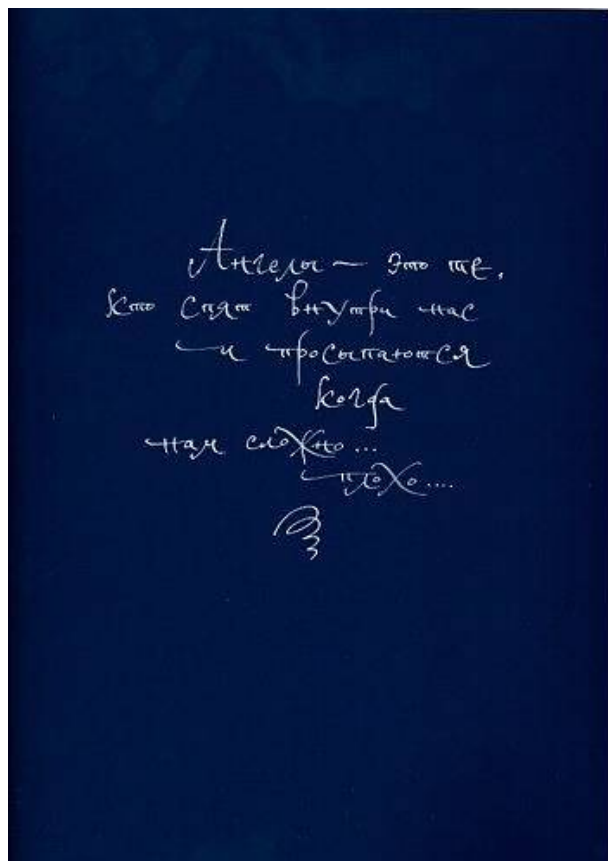 Ангелы — это те,
кто спят внутри нас
и просыпаются
когда
нам сложно...
плохо....